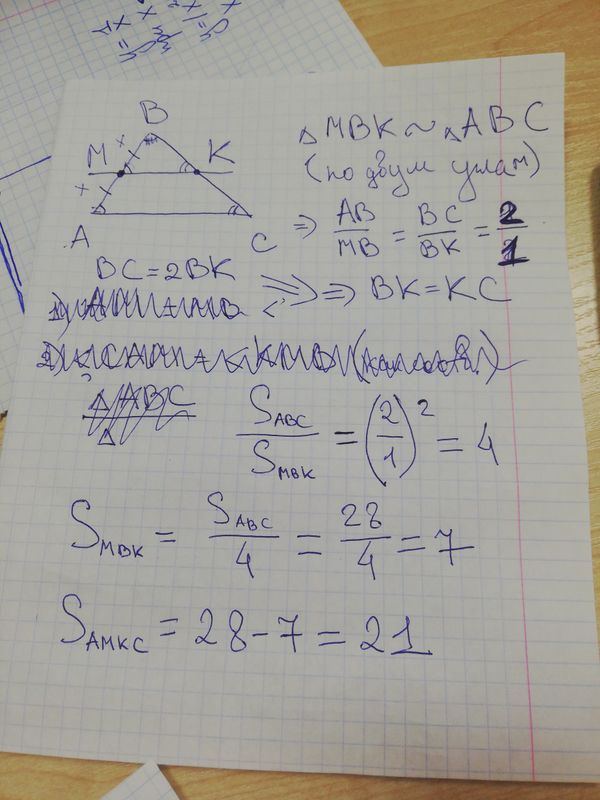 B
M K
A C
△MBK ~ △ABC
(по двум углам)
⇒ AB/MB = BC/BK = 2/1
BC = 2BK ⇒ BK = KC
1)
2)
△ABC
△
S_ABC/S_MBK = (2/1)² = 4
S_MBK = S_ABC/4 = 28/4 = 7
S_AMKC = 28 - 7 = 21